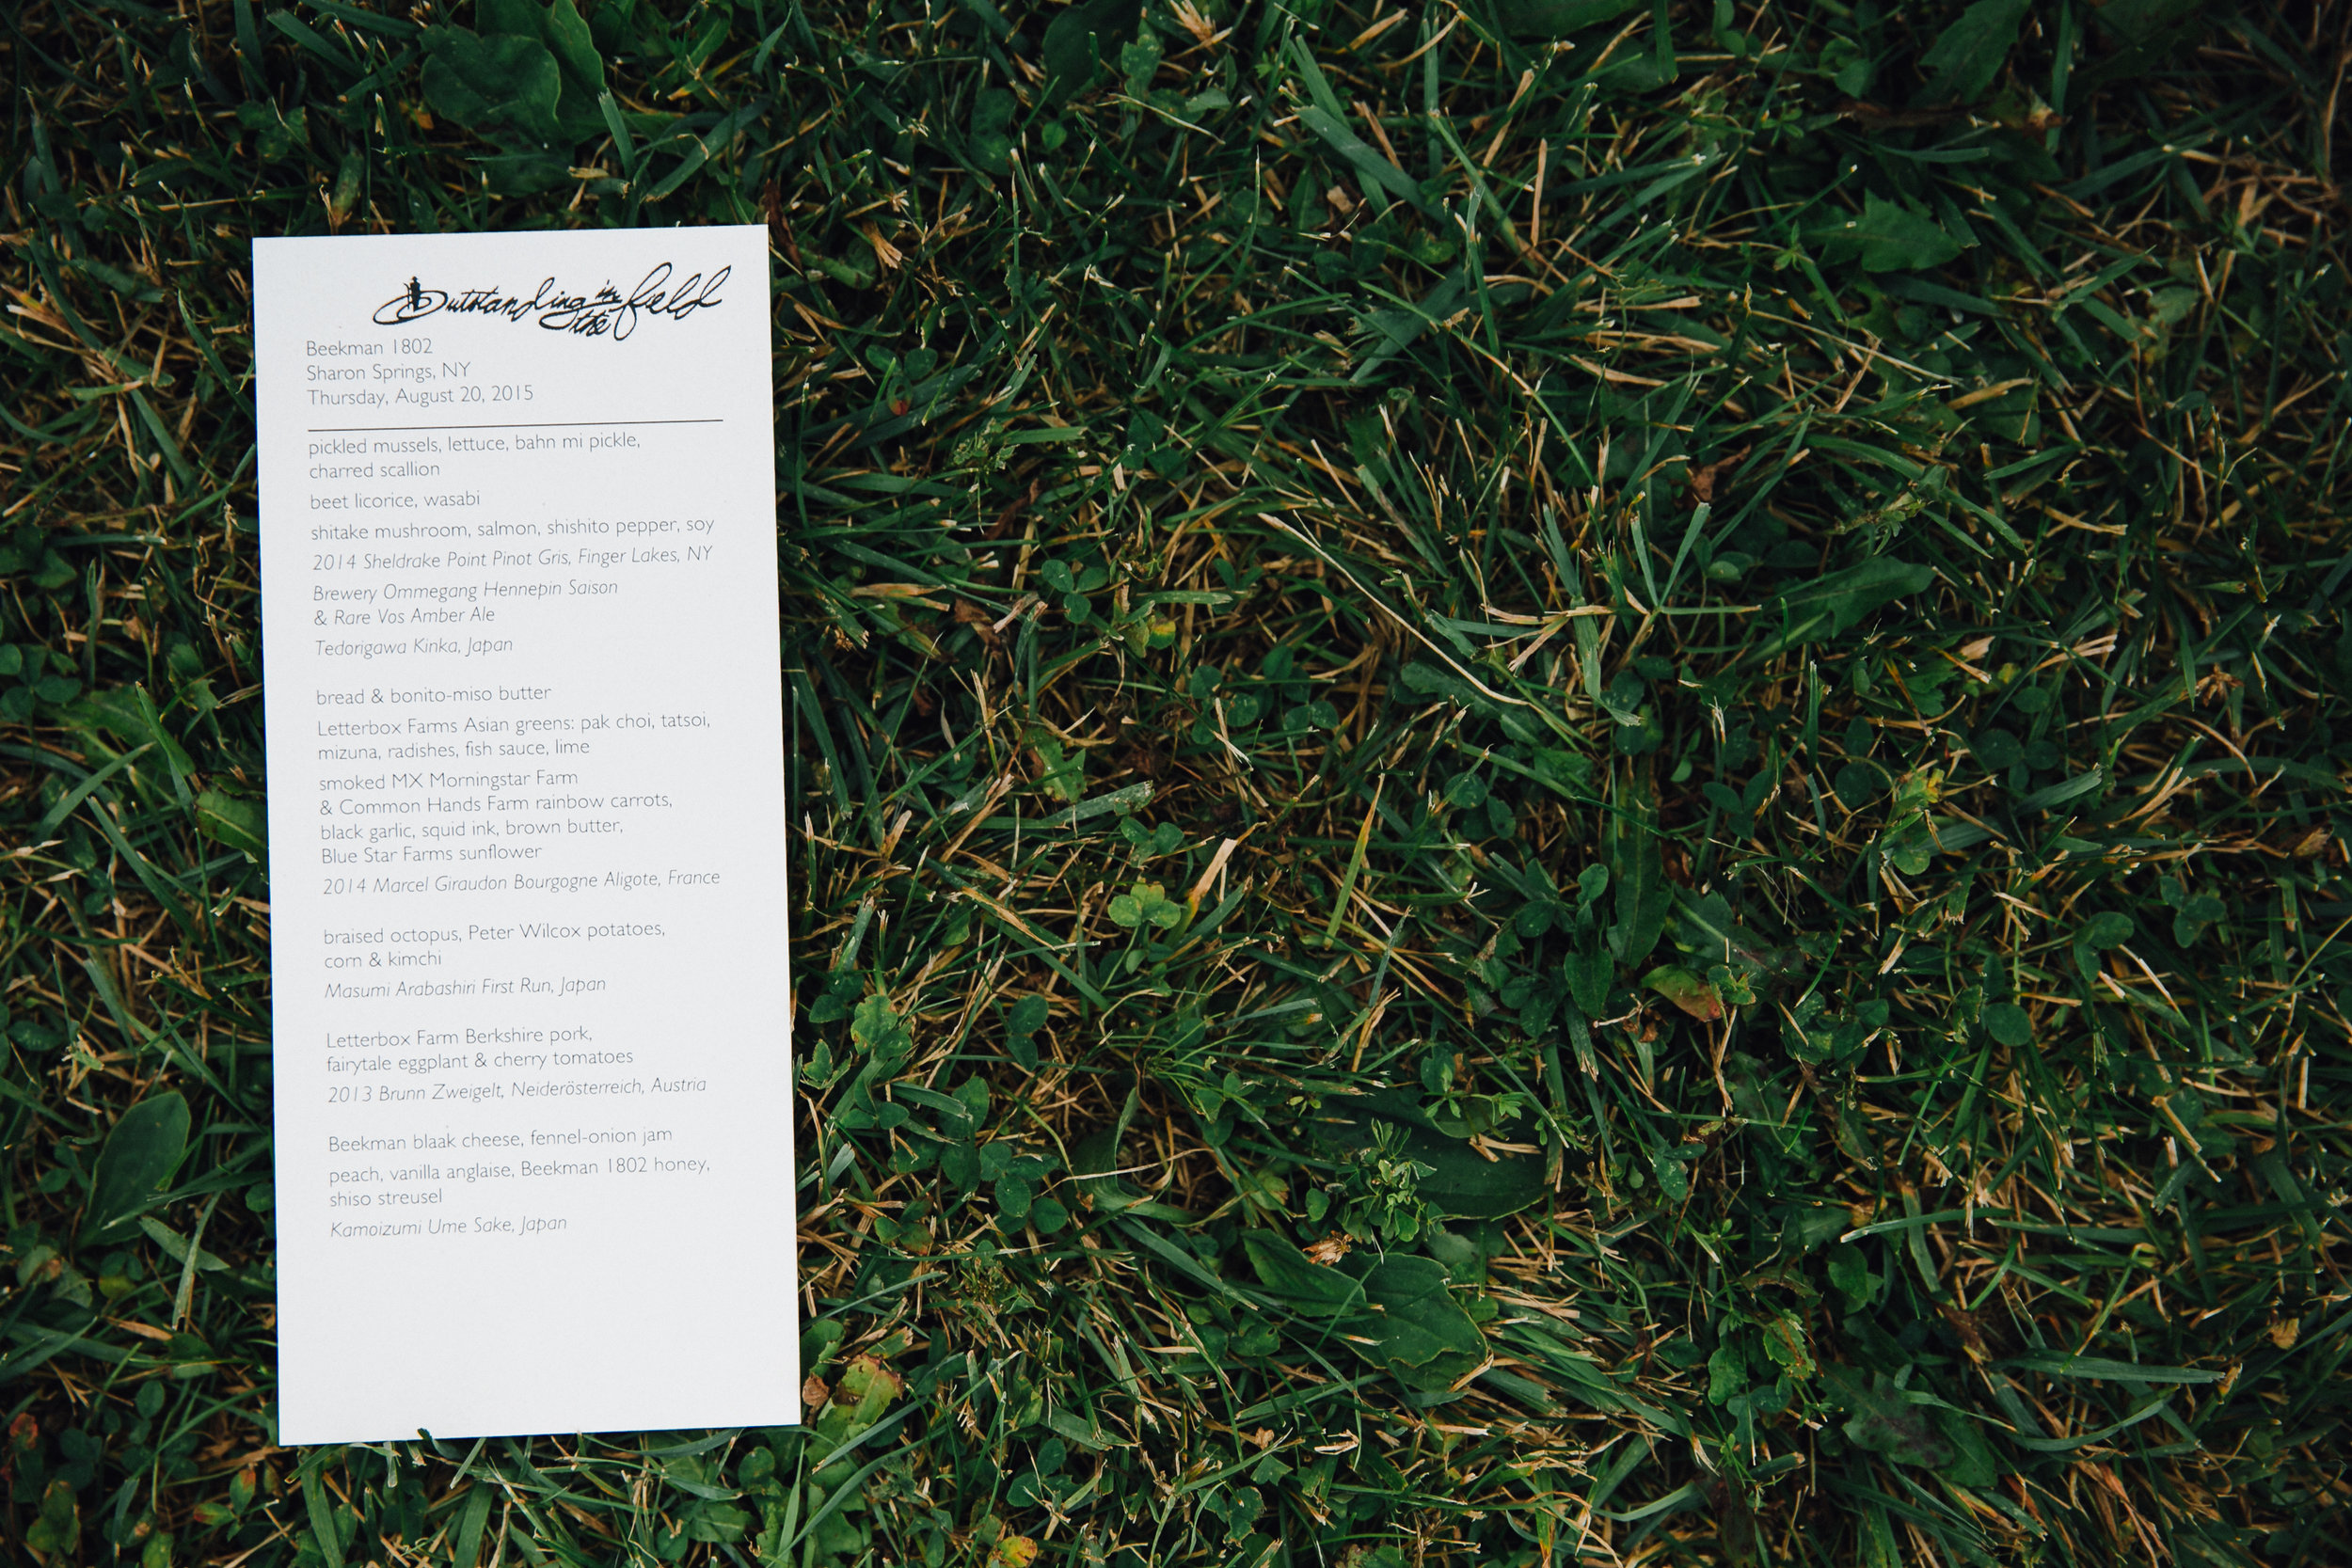 Outstanding in the field
Beekman 1802
Sharon Springs, NY
Thursday, August 20, 2015
pickled mussels, lettuce, bahn mi pickle,
charred scallion
beet licorice, wasabi
shitake mushroom, salmon, shishito pepper, soy
2014 Sheldrake Point Pinot Gris, Finger Lakes, NY
Brewery Ommegang Hennepin Saison
& Rare Vos Amber Ale
Tedorigawa Kinka, Japan
bread & bonito-miso butter
Letterbox Farms Asian greens: pak choi, tatsoi,
mizuna, radishes, fish sauce, lime
smoked MX Morningstar Farm
& Common Hands Farm rainbow carrots,
black garlic, squid ink, brown butter,
Blue Star Farms sunflower
2014 Marcel Giraudon Bourgogne Aligote, France
braised octopus, Peter Wilcox potatoes,
corn & kimchi
Masumi Arabashiri First Run, Japan
Letterbox Farm Berkshire pork,
fairytale eggplant & cherry tomatoes
2013 Brunn Zweigelt, Neiderösterreich, Austria
Beekman blaak cheese, fennel-onion jam
peach, vanilla anglaise, Beekman 1802 honey,
shiso streusel
Kamoizumi Ume Sake, Japan